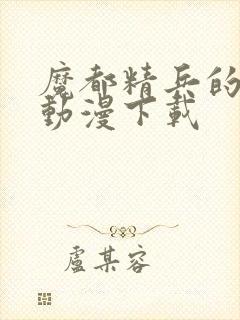 魔都精兵的
動漫下載
盧某容